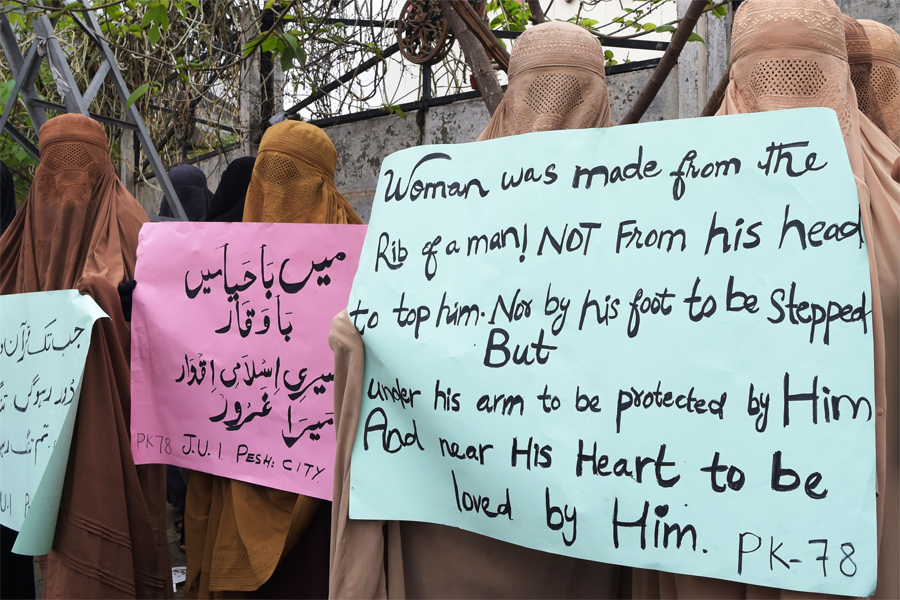 جب تک قرآن
دور رہوگی
میں باحیا میں
باوقار
میری اسلامی اقدار
میرا غرور
PK78 J.U.I PESH: CITY
Woman was made from the
Rib of a man! NOT From his head
to top him. Nor by his foot to be Stepped
But
under his arm to be protected by Him
And near His Heart to be
loved by Him.
PK-78